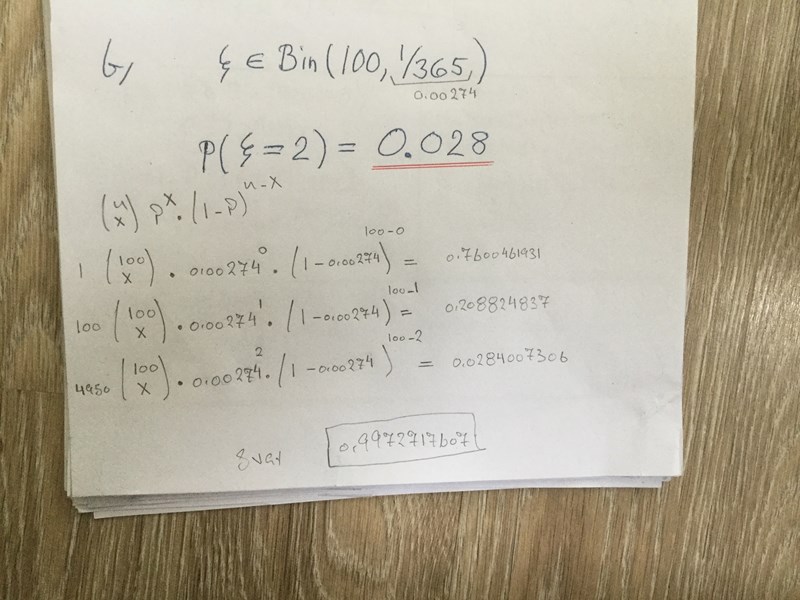 b, ξ ∈ Bin(100, 1/365)
0.00274
P(ξ=2) = 0.028
(n x) p^x · (1-p)^n-x
1 (100 x) · 0.00274^0 · (1-0.00274)^100-0 = 0.7600461931
100 (100 x) · 0.00274^1 · (1-0.00274)^100-1 = 0.208824837
4950 (100 x) · 0.00274^2 · (1-0.00274)^100-2 = 0.0284007306
svar 0.9972717607